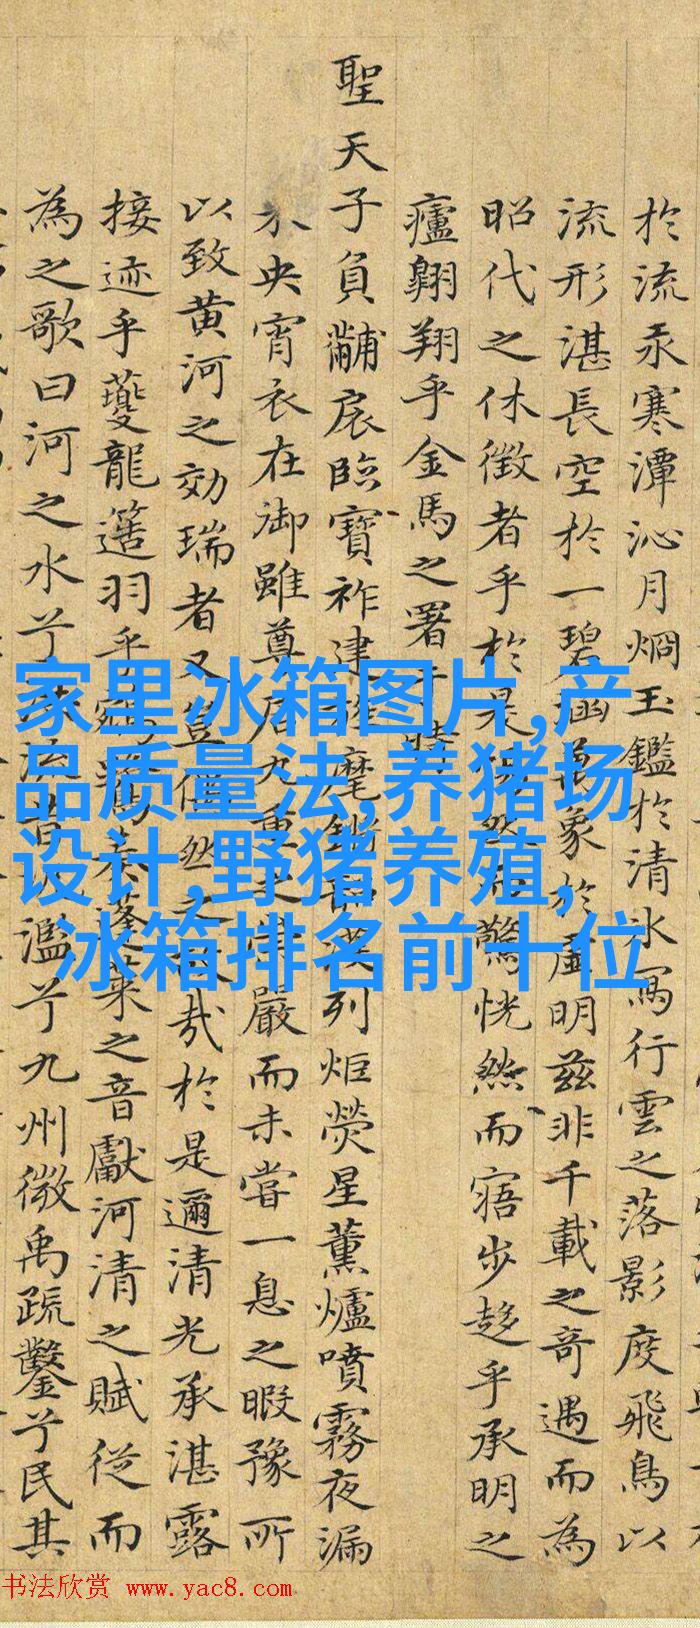 於流汞寒潭沁月烱玉鑑於清氷寫行雲之落影度飛鳥以
流形湛長空於一碧涵萬象於虛明茲非千載之奇遇而為
昭代之休徵者乎於是然驚恍然而寤步趍乎承明之
廬翶翔乎金馬之署于時
聖天子負黼扆臨寶祚建麾列炬熒星薰爐噴霧夜漏
未央宵衣在御雖尊居九重之崇嚴而未嘗一息之暇豫所
以致黄河之効瑞者又豈偶然之故哉於是邇清光承湛露
接迹乎夔龍簉羽乎鵷鷺奏蓬萊之音獻河清之賦從而
為之歌曰河之水兮流昔濫兮九州微禹疏鑿兮民其
家里冰箱图片,产
品质量法,养猪场
设计,野猪养殖,
冰箱排名前十位
书法欣赏 www.yac8.com